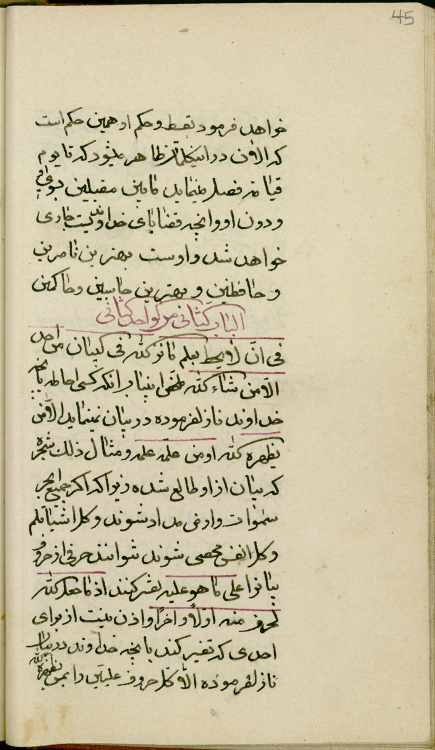 45
خواهد فرمود بقسط و حکم او همین حکم است
که الآن در این کلمات ظاهر میشود که تا یوم
قیامة فصل مینماید مابین مقبلین بحق
و دون او و آنچه قضایای خداوند است جاری
خواهد شد و اوست بهترین ناصرین
و حافظین و بهترین حاسبین و حاکمین
الباب الثانی من الواحد الثانی
فی ان لا یحیط بعلم ما نزل الله فی البیان من احد
الا من شاء الله ملخص این باب آنکه کسی احاطه بآنچه
خداوند نازل فرموده در بیان ننماید الا من
یظهره الله او من علمه علمه و مثال ذلک شجره
که بیان از او طالع شده زیرا که اگر جمیع ابحر
سموات و ارض مداد شوند و کل اشیاء قلم
و کل انفس محصی شوند نتوانند حرفی از حروف
بیان را علی ما هو علیه تفسیر کنند اذ ما جعل الله
لحرف منه اولا و آخرا و اذن نیست از برای
احدی که تفسیر کند بآنچه خداوند در بیان
نازل فرموده الا کل حروف علیین را بمن یظهره الله